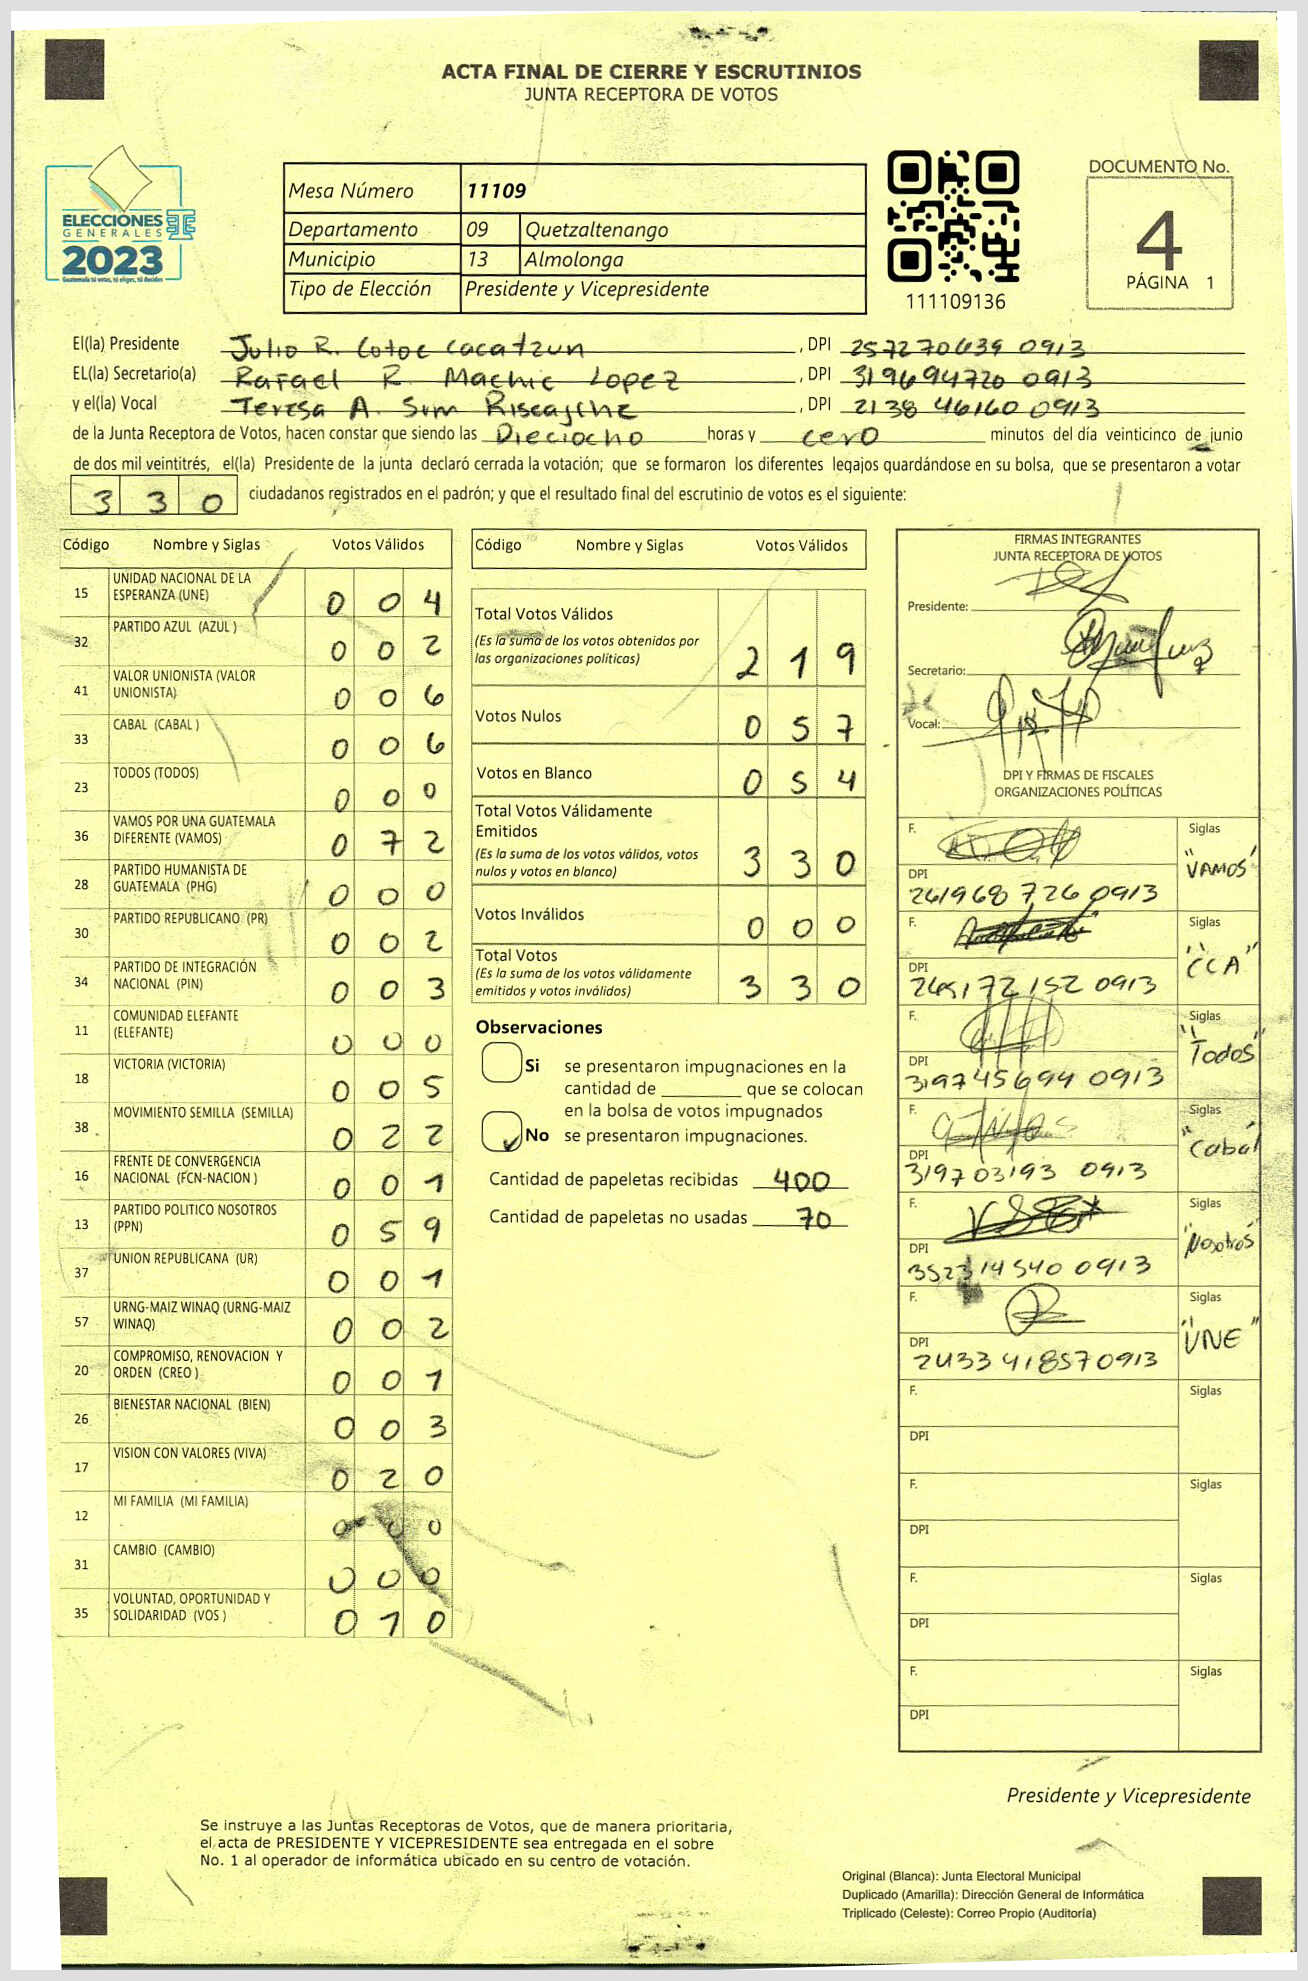 ACTA FINAL DE CIERRE Y ESCRUTINIOS
JUNTA RECEPTORA DE VOTOS
ELECCIONES
GENERALES
2023
Guatemala tú votas, tú eliges, tú decides
Mesa Número 11109
Departamento 09 Quetzaltenango
Municipio 13 Almolonga
Tipo de Elección Presidente y Vicepresidente
111109136
DOCUMENTO No.
4
PÁGINA 1
El(la) Presidente Julio R. Cotoc Cacatzun , DPI 257270639 0913
EL(la) Secretario(a) Rafael R. Machic Lopez , DPI 319694720 0913
y el(la) Vocal Teresa A. Sum Riscajche , DPI 2138 46160 0913
de la Junta Receptora de Votos, hacen constar que siendo las Dieciocho horas y cero minutos del día veinticinco de junio
de dos mil veintitrés, el(la) Presidente de la junta declaró cerrada la votación; que se formaron los diferentes legajos guardándose en su bolsa, que se presentaron a votar
330 ciudadanos registrados en el padrón; y que el resultado final del escrutinio de votos es el siguiente:
Código Nombre y Siglas Votos Válidos
15 UNIDAD NACIONAL DE LA ESPERANZA (UNE) 004
32 PARTIDO AZUL (AZUL ) 002
41 VALOR UNIONISTA (VALOR UNIONISTA) 006
33 CABAL (CABAL ) 006
23 TODOS (TODOS) 000
36 VAMOS POR UNA GUATEMALA DIFERENTE (VAMOS) 072
28 PARTIDO HUMANISTA DE GUATEMALA (PHG) 000
30 PARTIDO REPUBLICANO (PR) 002
34 PARTIDO DE INTEGRACIÓN NACIONAL (PIN) 003
11 COMUNIDAD ELEFANTE (ELEFANTE) 000
18 VICTORIA (VICTORIA) 005
38 MOVIMIENTO SEMILLA (SEMILLA) 022
16 FRENTE DE CONVERGENCIA NACIONAL (FCN-NACION ) 001
13 PARTIDO POLITICO NOSOTROS (PPN) 059
37 UNION REPUBLICANA (UR) 001
57 URNG-MAIZ WINAQ (URNG-MAIZ WINAQ) 002
20 COMPROMISO, RENOVACION Y ORDEN (CREO ) 001
26 BIENESTAR NACIONAL (BIEN) 003
17 VISION CON VALORES (VIVA) 020
12 MI FAMILIA (MI FAMILIA) 000
31 CAMBIO (CAMBIO) 000
35 VOLUNTAD, OPORTUNIDAD Y SOLIDARIDAD (VOS ) 010
Código Nombre y Siglas Votos Válidos
Total Votos Válidos 219
(Es la suma de los votos obtenidos por
las organizaciones políticas)
Votos Nulos 057
Votos en Blanco 054
Total Votos Válidamente
Emitidos 330
(Es la suma de los votos válidos, votos
nulos y votos en blanco)
Votos Inválidos 000
Total Votos 330
(Es la suma de los votos válidamente
emitidos y votos inválidos)
Observaciones
Si se presentaron impugnaciones en la
cantidad de ________ que se colocan
en la bolsa de votos impugnados
No se presentaron impugnaciones.
Cantidad de papeletas recibidas 400
Cantidad de papeletas no usadas 70
FIRMAS INTEGRANTES
JUNTA RECEPTORA DE VOTOS
Presidente:
Secretario:
Vocal:
DPI Y FIRMAS DE FISCALES
ORGANIZACIONES POLÍTICAS
F. Siglas
DPI "VAMOS"
261968 726 0913
F. Siglas
DPI "CCA"
265172152 0913
F. Siglas
DPI "Todos"
319745694 0913
F. Siglas
DPI "Cabal
319703193 0913
F. Siglas
DPI "Nosotros"
352314540 0913
F. Siglas
DPI "UNE"
2433 41857 0913
F. Siglas
DPI
F. Siglas
DPI
F. Siglas
DPI
F. Siglas
DPI
Presidente y Vicepresidente
Se instruye a las Juntas Receptoras de Votos, que de manera prioritaria,
el acta de PRESIDENTE Y VICEPRESIDENTE sea entregada en el sobre
No. 1 al operador de informática ubicado en su centro de votación.
Original (Blanca): Junta Electoral Municipal
Duplicado (Amarilla): Dirección General de Informática
Triplicado (Celeste): Correo Propio (Auditoría)